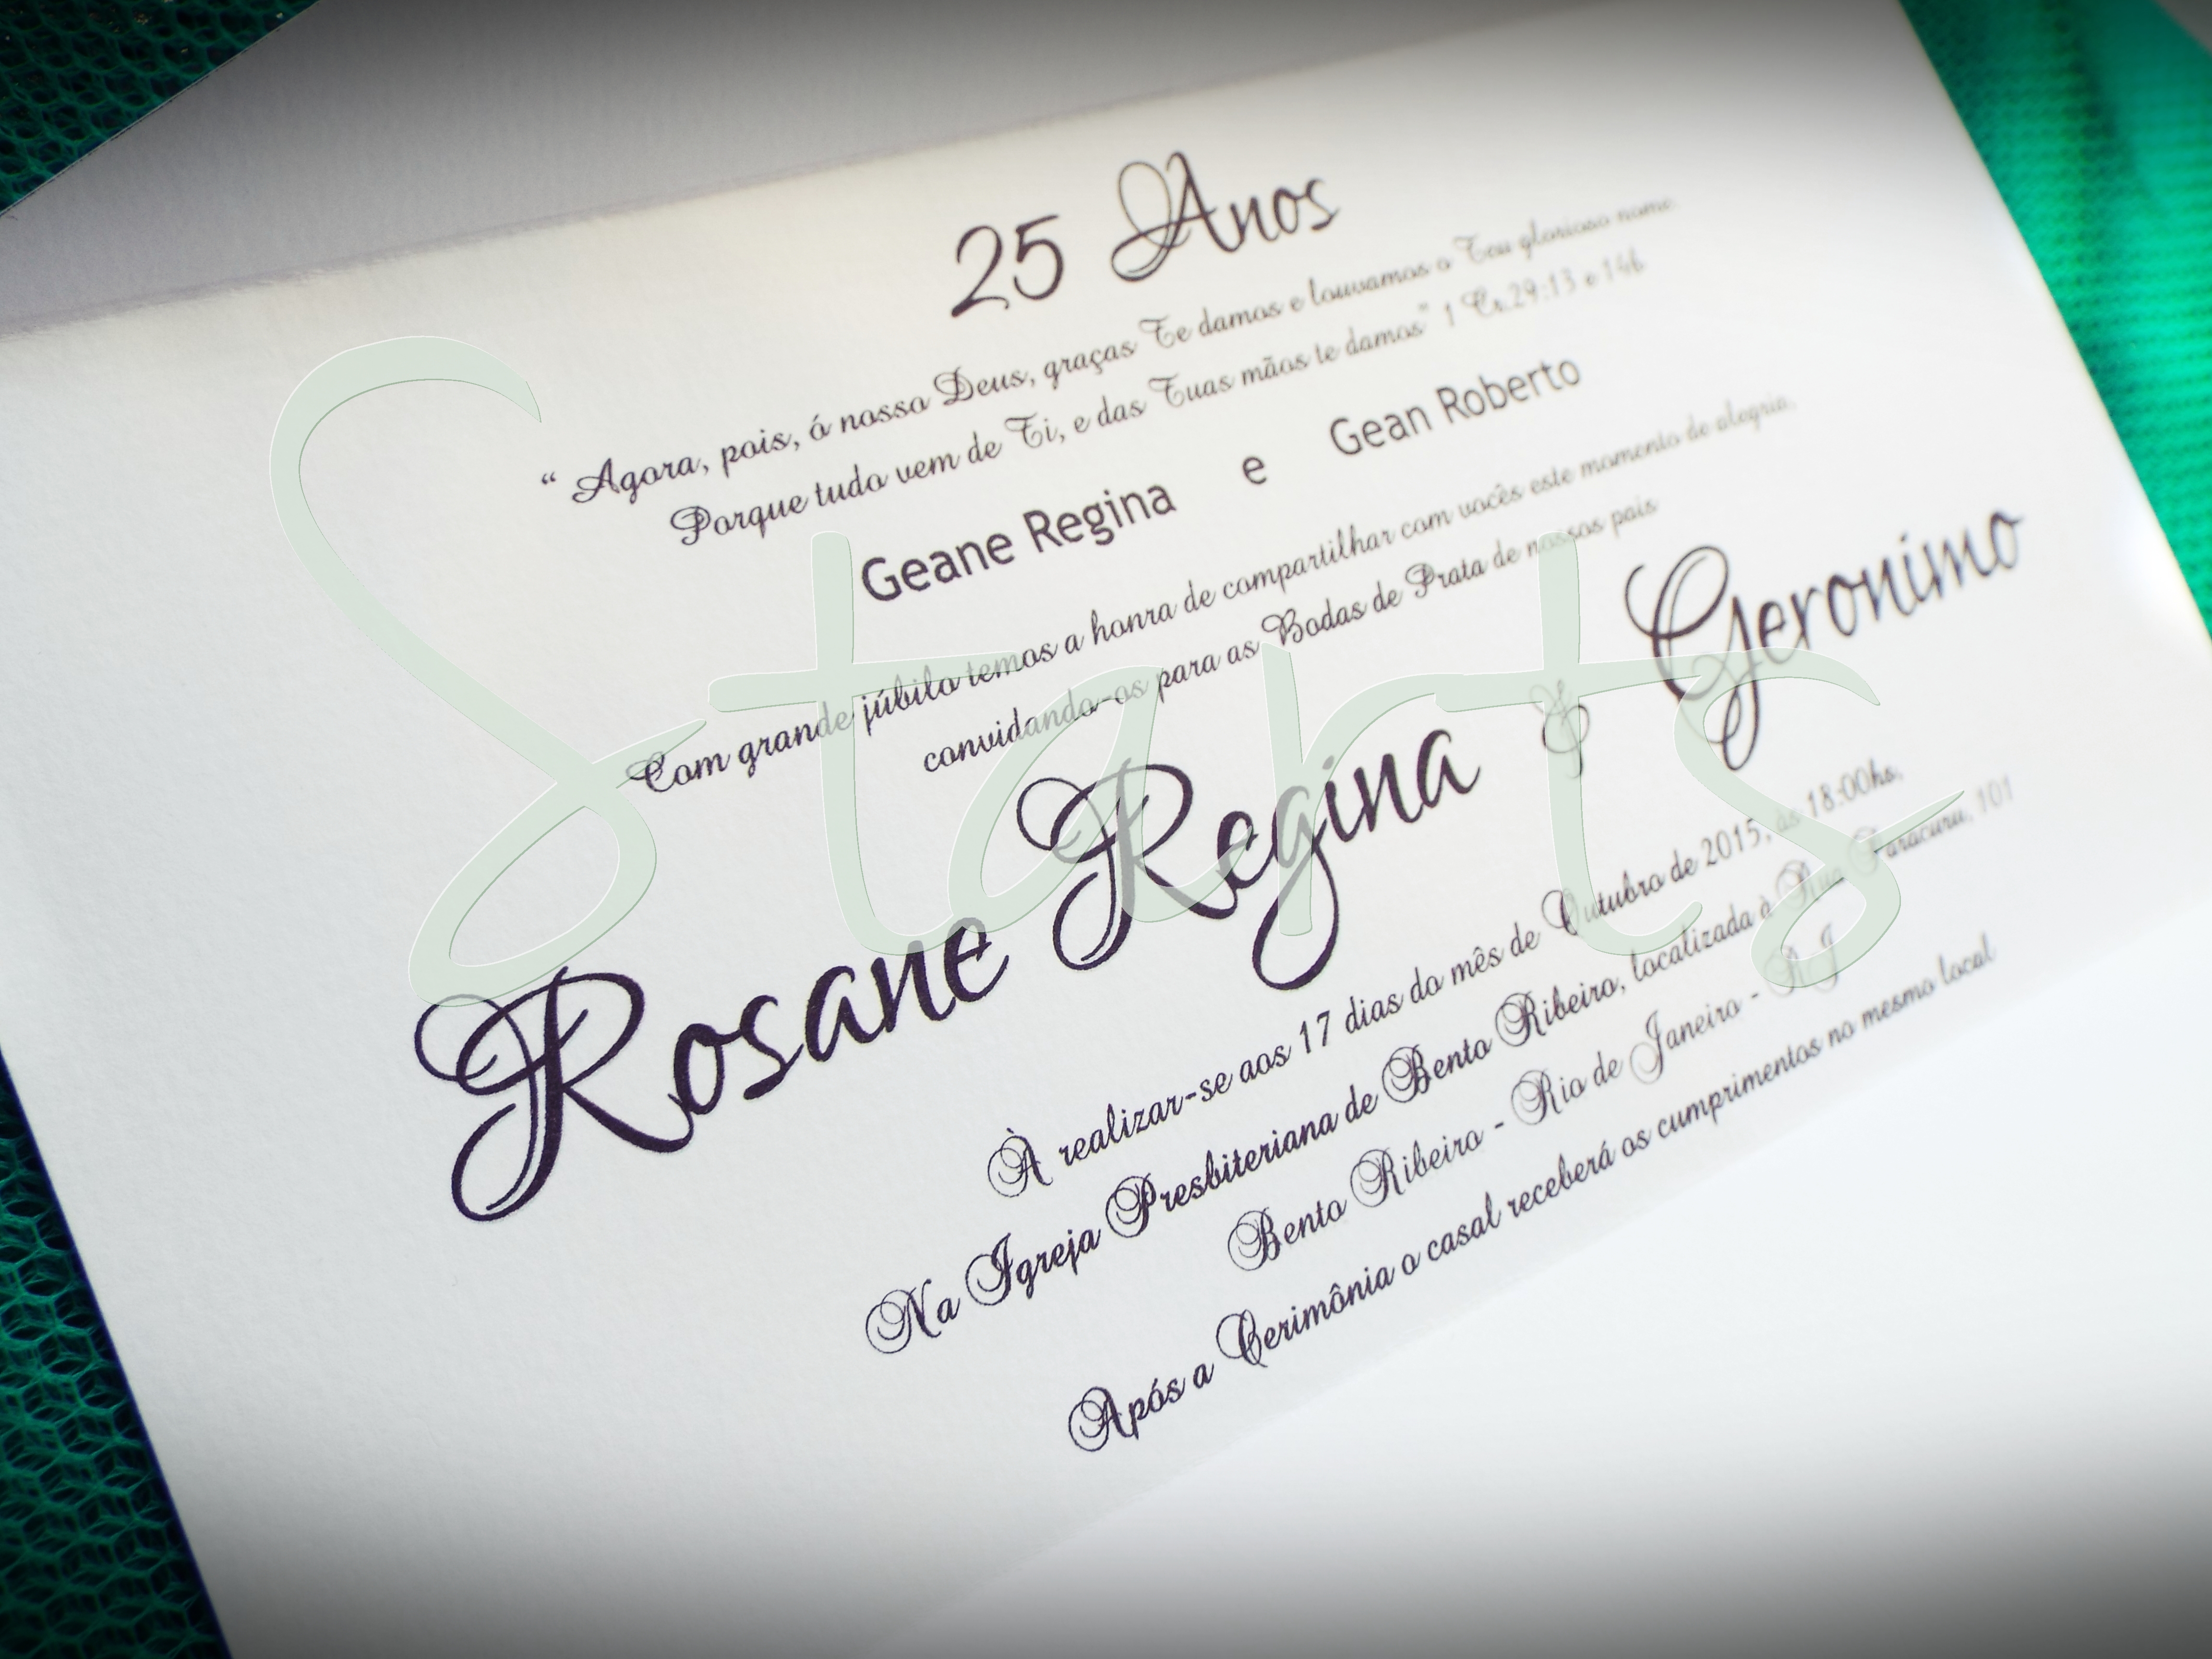 25 Anos
“ Agora, pois, ó nosso Deus, graças Te damos e louvamos o Teu glorioso nome.
Porque tudo vem de Ti, e das Tuas mãos te damos” 1 Cr.29:13 e 14b
Geane Regina e Gean Roberto
Com grande júbilo temos a honra de compartilhar com vocês este momento de alegria,
convidando-os para as Bodas de Prata de nossos pais
Rosane Regina & Geronimo
À realizar-se aos 17 dias do mês de Outubro de 2015, às 18:00hs.
Na Igreja Presbiteriana de Bento Ribeiro, localizada à Rua Paracuru, 101
Bento Ribeiro - Rio de Janeiro - RJ
Após a Cerimônia o casal receberá os cumprimentos no mesmo local
Starts